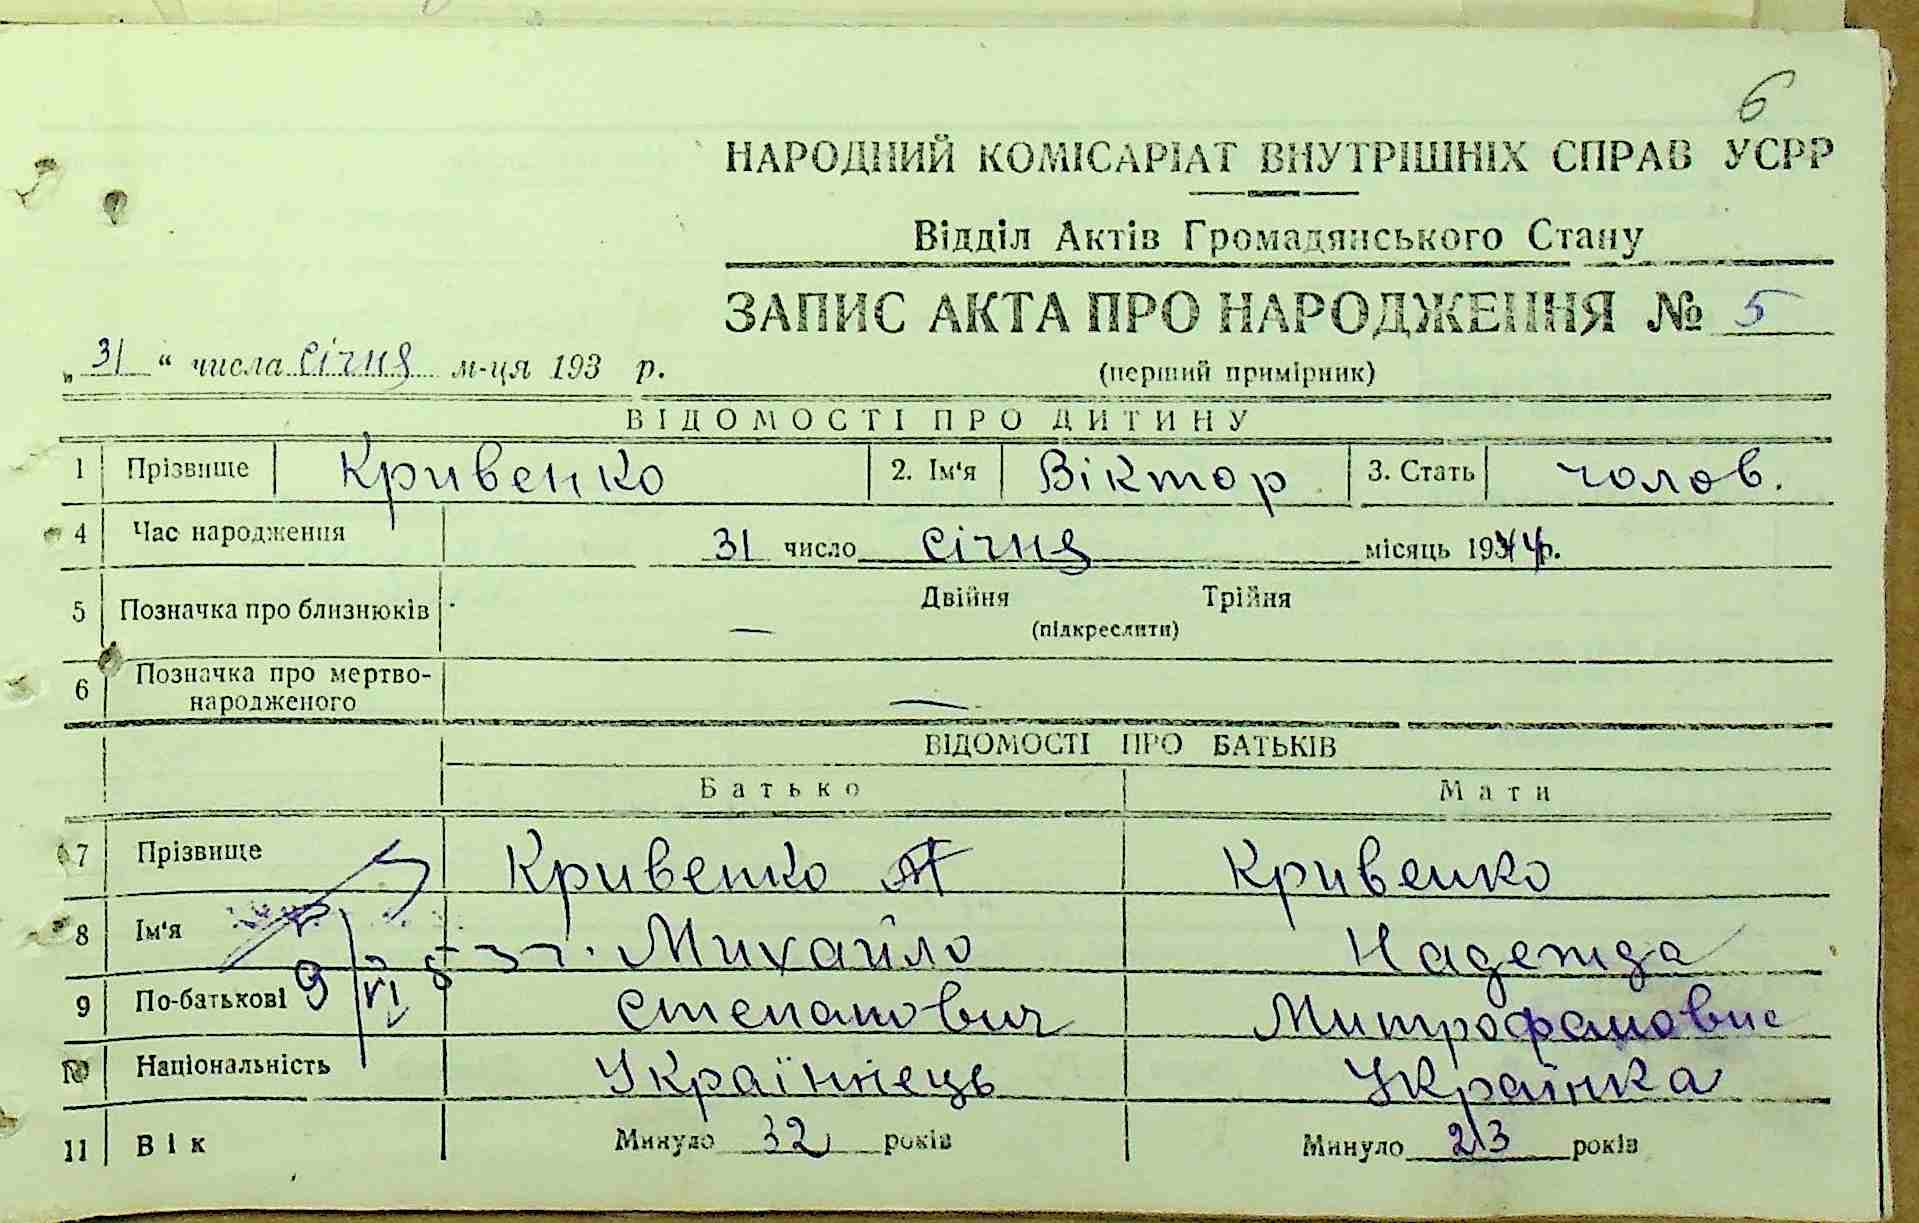 6
НАРОДНИЙ КОМІСАРІАТ ВНУТРІШНІХ СПРАВ УСРР
Відділ Актів Громадянського Стану
ЗАПИС АКТА ПРО НАРОДЖЕННЯ № 5
„ 31 “ числа січня м-ця 193 р.
(перший примірник)
ВІДОМОСТІ ПРО ДИТИНУ
1 Прізвище Кривенко 2. Ім'я Віктор 3. Стать чолов.
4 Час народження 31 число січня місяць 1944 р.
5 Позначка про близнюків — Двійня Трійня
(підкреслити)
6 Позначка про мертво-
народженого —
ВІДОМОСТІ ПРО БАТЬКІВ
Батько Мати
7 Прізвище Кривенко Кривенко
8 Ім'я Михайло Надежда
9 По-батькові Степанович Митрофановне
10 Національність Українець Українка
11 Вік Минуло 32 років Минуло 23 років